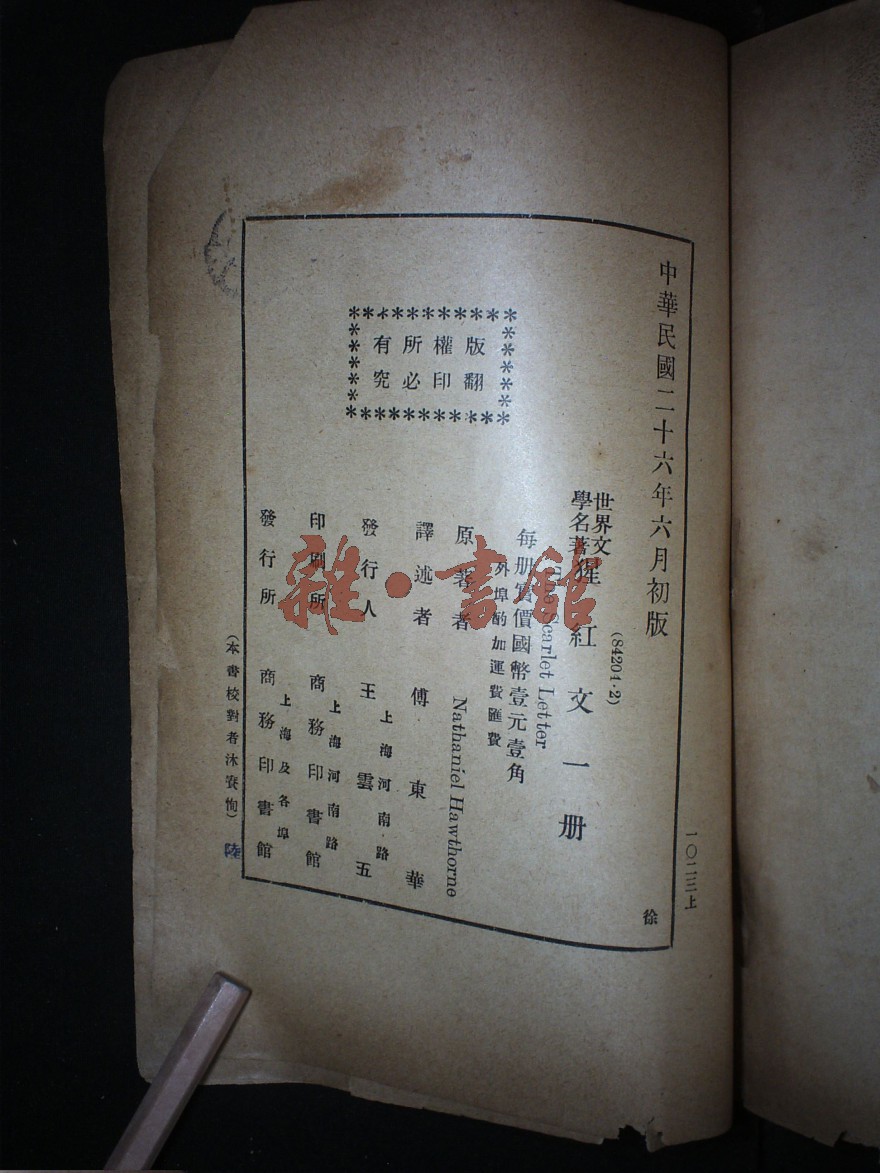 中華民國二十六年六月初版
(84204·2)
世界文
學名著 猩紅文一册
The Scarlet Letter
每册實價國幣壹元壹角
外埠酌加運費匯費
原著者 Nathaniel Hawthorne
譯述者 傅東華
發行人 王雲五
上海河南路
印刷所 商務印書館
上海河南路
發行所 商務印書館
上海及各埠
版權所有
翻印必究
(本書校對者沐賽恂)
陸
徐
一〇二三上
雜·書館